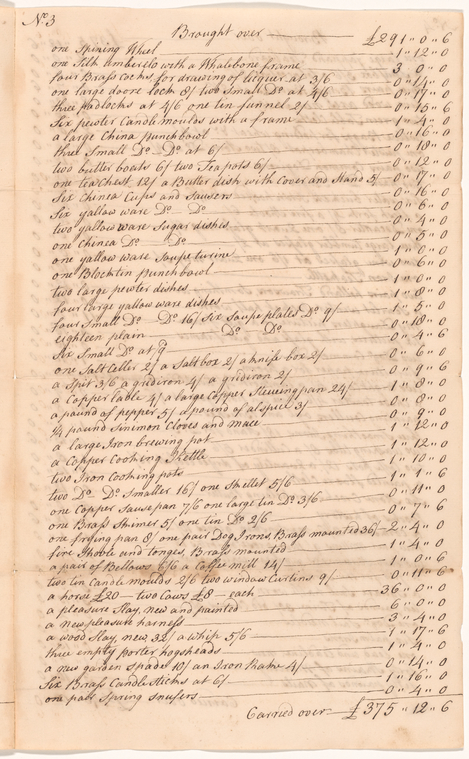 No 3
Brought over — £291 " 0 " 6
one Spining Wheel — 1 " 12 " 0
one Silk umberelo with a Whalebone frame — 3 " 0 " 0
four Brass Cocks, for drawing of liquer at 3/6 — 0 " 14 " 0
one large doore lock 8/ two Small Do at 4/6 — 0 " 17 " 0
three padlocks at 4/6 one tin funnel 2/ — 0 " 15 " 6
Six pewter Candlemoulds with a frame — 1 " 4 " 0
a large China punchbowl — 0 " 16 " 0
three Small Do Do at 6/ — 0 " 18 " 0
two butter boats 6/ two Tea pots 6/ — 0 " 12 " 0
one tea Chest 12/ a Butter dish with Cover and Stand 5/ — 0 " 17 " 0
Six Chinea Cups and Sausers — 0 " 16 " 0
Six yallow ware Do Do — 0 " 6 " 0
two yallow ware Sugar dishes — 0 " 4 " 0
one Chinea Do Do — 0 " 5 " 0
one yallow ware Soupe turine — 1 " 0 " 0
one Blocktin punchbowl — 0 " 6 " 0
two large pewter dishes — 1 " 0 " 0
four large yallow ware dishes — 1 " 8 " 0
four Small Do Do 16/ Six Soupe plates Do 9/ — 1 " 5 " 0
eighteen plain Do Do — 0 " 18 " 0
Six Small Do at 9 — 0 " 4 " 6
one Salt Celler 2/ a Salt box 2/ a knife box 2/ — 0 " 6 " 0
a Spit 3/6 a gridiron 4/ a gridiron 2/ — 0 " 9 " 6
a Copper lable 4/ a large Copper Stewing pan 24/ — 1 " 8 " 0
a pound of pepper 5/ a pound of alspice 3/ — 0 " 8 " 0
1/4 pound Sinimon Cloves and mace — 0 " 9 " 0
a large Iron brewing pot — 1 " 12 " 0
a Copper Cooking Kettle — 1 " 12 " 0
two Iron Cooking pots — 1 " 10 " 0
two Do Do Smaller 16/ one Skellet 5/6 — 1 " 1 " 6
one Copper Sausepan 7/6 one large tin Do 3/6 — 0 " 11 " 0
one Brass Skimer 5/ one tin Do 2/6 — 0 " 7 " 6
one frying pan 8/ one pair Dog Irons Brass mounted 36/ — 2 " 4 " 0
fire Shovle and tonges Brass mounted — 1 " 4 " 0
a pair of Bellows 6/6 a Coffee mill 14/ — 1 " 0 " 6
two tin Candle moulds 2/6 two window Curtins 9/ — 0 " 11 " 6
a horse £20 — two Caws £8 — each — 36 " 0 " 0
a pleasure Slay, new and painted — 6 " 0 " 0
a new pleasure harness — 3 " 4 " 0
a wood Slay, new 32/ a whip 5/6 — 1 " 17 " 6
three empty porter hogsheads — 1 " 4 " 0
a new garden Spade 10/ an Iron Rake 4/ — 0 " 14 " 0
Six Brass Candlesticks at 6/ — 1 " 16 " 0
one pair Spring snufers — 0 " 4 " 0
Carried over — £375 " 12 " 6